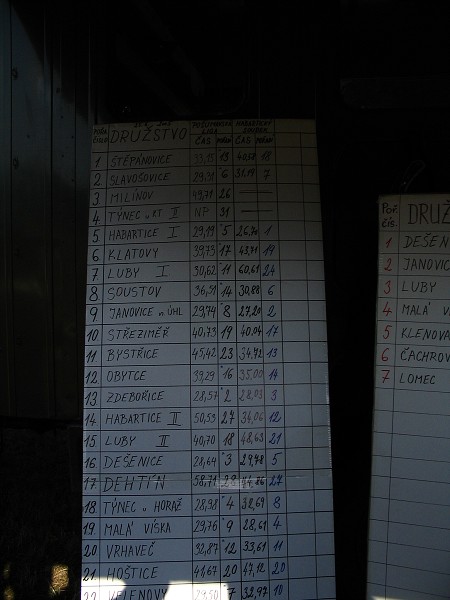 DRUŽSTVO ČAS ČAS
1 ŠTĚPÁNOVICE 33,15 13 40,58 18
2 SLAVOŠOVICE 29,31 6 31,19 7
3 MILÍNOV 49,71 26 —
4 TÝNEC n. KT II NP 31 —
5 HABARTICE I 29,19 5 26,70 1
6 KLATOVY 39,73 17 43,71 19
7 LUBY I 30,62 11 60,61 24
8 SOUSTOV 36,51 14 30,88 6
9 JANOVICE n. ÚHL 29,74 8 27,20 2
10 STŘEZIMĚŘ 40,73 19 40,04 17
11 BYSTŘICE 45,42 23 34,72 13
12 OBYTCE 39,29 16 35,00 14
13 ZDEBOŘICE 28,57 2 28,03 3
14 HABARTICE II 50,53 27 34,06 12
15 LUBY II 40,70 18 48,63 21
16 DEŠENICE 28,64 3 29,98 5
17 DEHTÍN 58,71 27
18 TÝNEC n HORAŽ 28,98 4 38,69 8
19 MALÁ VÍSKA 29,76 9 28,61 4
20 VRHAVEČ 32,87 12 33,61 11
21 HOŠTICE 41,67 20 47,12 20
22 KELENOVY 7 32,97 10
Poř. čís. DRUŽ
1 DEŠEN
2 JANOVIC
3 LUBY
4 MALÁ V
5 KLENOVA
6 ČACHROV
7 LOMEC